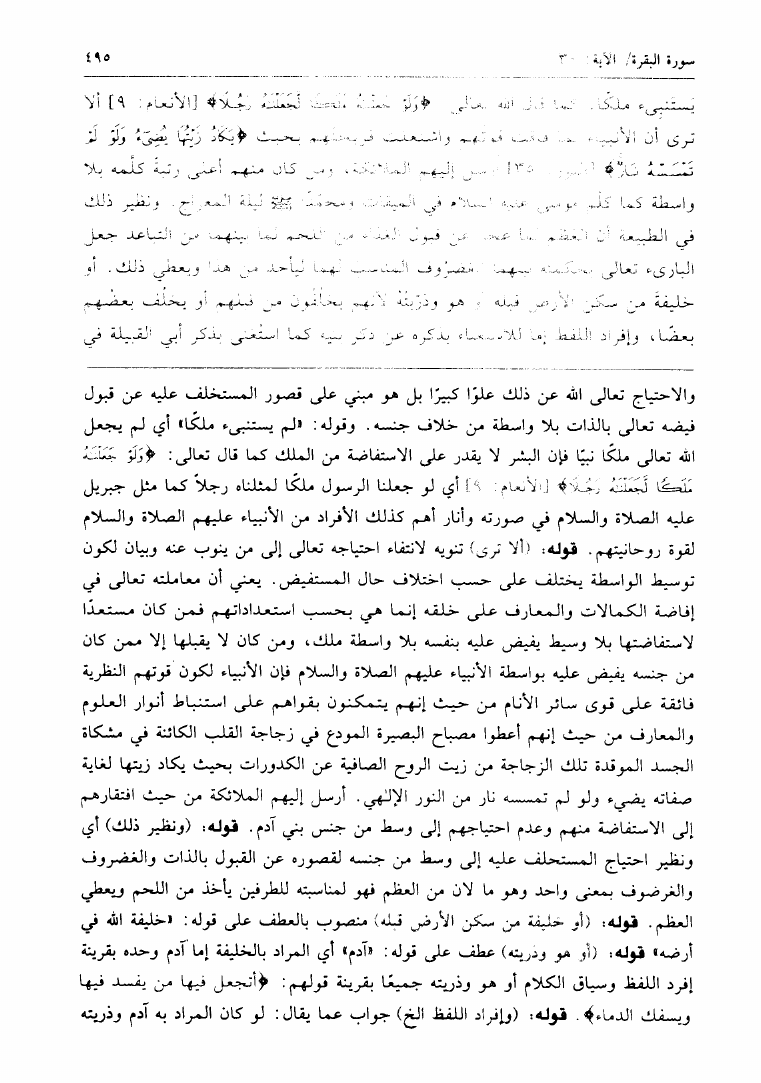 سورة البقرة/ الآية: ٣٠ ٤٩٥
يَستَنبِىء ملكًا. كما قال الله تعالى ﴿وَلَوْ جَعَلْنَاهُ مَلَكًا لَجَعَلْنَاهُ رَجُلًا﴾ [الأنعام: ٩] ألا
ترى أن الأنبياء لما فاقت قوتهم واشتعلت قريحتهم بحيث ﴿يَكَادُ زَيْتُهَا يُضِيءُ وَلَوْ لَمْ
تَمْسَسْهُ نَارٌ﴾ [النور: ٣٥] أرسل إليهم الملائكة، ومن كان منهم أعلى رتبةً كلّمه بلا
واسطة كما كلّم موسى عليه السلام في الميقات ومحمّدًا ﷺ ليلة المعراج. ونظير ذلك
في الطبيعة أن العَظم لما عجز عن قبول الغذاء من اللحم لما بينهما من التباعد جعل
البارىء تعالى بحكمته بينهما الغضرُوف المناسب لهما ليأخذ من هذا ويعطي ذلك. أو
خليفةً من سكن الأرض قبله أو هو وذرّيتُهُ لأنهم يخلُفون من قبلهم أو يخلُف بعضُهم
بعضًا، وإفراد اللفظ إما للاستغناء بذكره عن ذكر بنيه كما استُغني بذكر أبي القبيلة في
والاحتياج تعالى الله عن ذلك علوًا كبيرًا بل هو مبني على قصور المستخلف عليه عن قبول
فيضه تعالى بالذات بلا واسطة من خلاف جنسه. وقوله: «لم يستنبىء ملكًا» أي لم يجعل
الله تعالى ملكًا نبيًا فإن البشر لا يقدر على الاستفاضة من الملك كما قال تعالى: ﴿وَلَوْ جَعَلْنَاهُ
مَلَكًا لَجَعَلْنَاهُ رَجُلًا﴾ [الأنعام: ٩] أي لو جعلنا الرسول ملكًا لمثلناه رجلاً كما مثل جبريل
عليه الصلاة والسلام في صورته وأنار أهم كذلك الأفراد من الأنبياء عليهم الصلاة والسلام
لقوة روحانيتهم. قوله: (ألا ترى) تنويه لانتفاء احتياجه تعالى إلى من ينوب عنه وبيان لكون
توسيط الواسطة يختلف على حسب اختلاف حال المستفيض. يعني أن معاملته تعالى في
إفاضة الكمالات والمعارف على خلقه إنما هي بحسب استعداداتهم فمن كان مستعدًا
لاستفاضتها بلا وسيط يفيض عليه بنفسه بلا واسطة ملك، ومن كان لا يقبلها إلا ممن كان
من جنسه يفيض عليه بواسطة الأنبياء عليهم الصلاة والسلام فإن الأنبياء لكون قوتهم النظرية
فائقة على قوى سائر الأنام من حيث إنهم يتمكنون بقواهم على استنباط أنوار العلوم
والمعارف من حيث إنهم أعطوا مصباح البصيرة المودع في زجاجة القلب الكائنة في مشكاة
الجسد الموقدة تلك الزجاجة من زيت الروح الصافية عن الكدورات بحيث يكاد زيتها لغاية
صفاته يضيء ولو لم تمسسه نار من النور الإلهي. أرسل إليهم الملائكة من حيث افتقارهم
إلى الاستفاضة منهم وعدم احتياجهم إلى وسط من جنس بني آدم. قوله: (ونظير ذلك) أي
ونظير احتياج المستخلف عليه إلى وسط من جنسه لقصوره عن القبول بالذات والغضروف
والغرضوف بمعنى واحد وهو ما لان من العظم فهو لمناسبته للطرفين يأخذ من اللحم ويعطي
العظم. قوله: (أو خليفة من سكن الأرض قبله) منصوب بالعطف على قوله: «خليفة الله في
أرضه» قوله: (أو هو وذريته) عطف على قوله: «آدم» أي المراد بالخليفة إما آدم وحده بقرينة
إفرد اللفظ وسياق الكلام أو هو وذريته جميعًا بقرينة قولهم: ﴿أتجعل فيها من يفسد فيها
ويسفك الدماء﴾. قوله: (وإفراد اللفظ الخ) جواب عما يقال: لو كان المراد به آدم وذريته